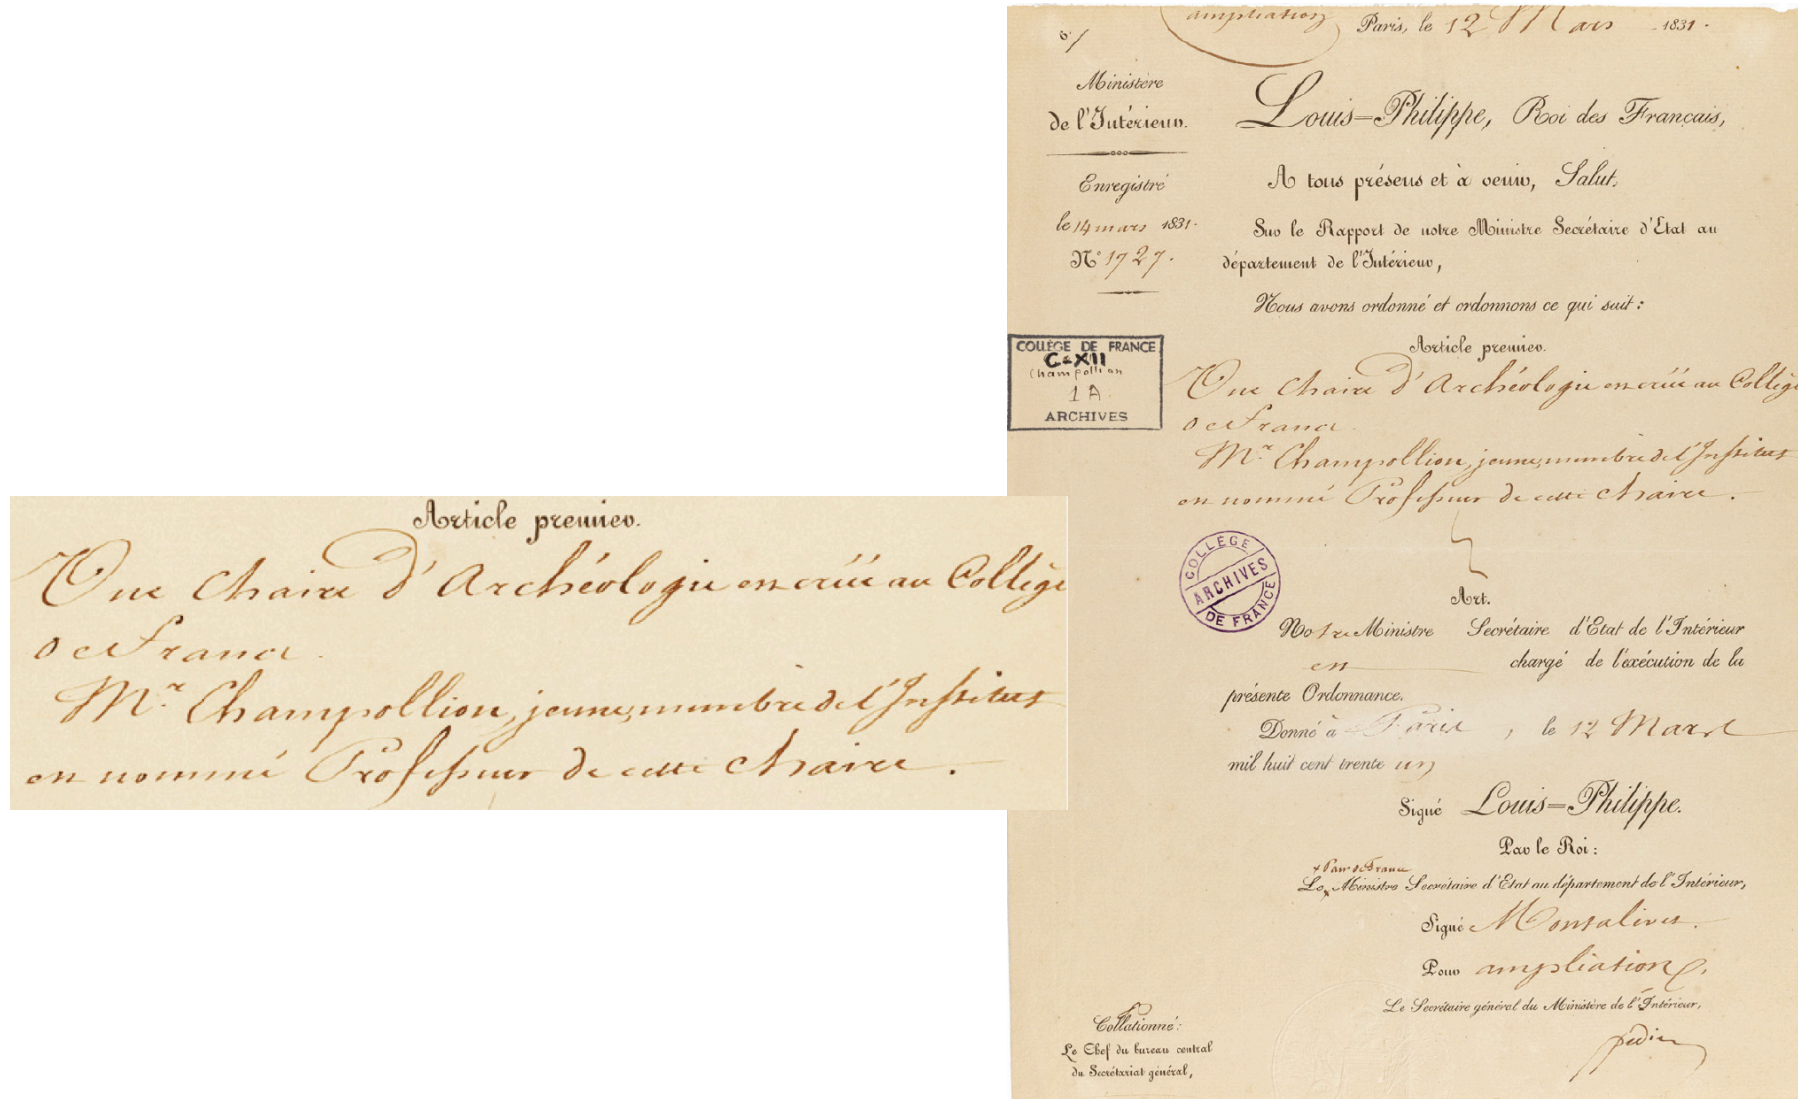 Article premier.
Une Chaire d'Archéologie est créée au Collège
de France.
Mr. Champollion, jeune, membre de l'Institut
est nommé Professeur de cette Chaire.
6./
ampliation
Paris, le 12 Mars 1831.
Ministère
de l'Intérieur.
Enregistré
le 14 mars 1831.
No 1727.
Louis=Philippe, Roi des Français,
A tous présens et à venir, Salut.
Sur le Rapport de notre Ministre Secrétaire d'Etat au
département de l'Intérieur,
Nous avons ordonné et ordonnons ce qui suit:
COLLÈGE DE FRANCE
C-XII
Champollion
1 A
ARCHIVES
Article premier.
Une Chaire d'Archéologie est créée au Collège
de France.
Mr. Champollion, jeune, membre de l'Institut
est nommé Professeur de cette Chaire.
COLLEGE
ARCHIVES
DE FRANCE
Art.
Notre Ministre Secrétaire d'Etat de l'Intérieur
est chargé de l'exécution de la
présente Ordonnance.
Donné à Paris, le 12 Mars
mil huit cent trente un
Signé Louis=Philippe.
Par le Roi:
Pair de France
Le Ministre Secrétaire d'Etat au département de l'Intérieur,
Signé Montalivet.
Pour ampliation
Le Secrétaire général du Ministère de l'Intérieur,
Collationné:
Le Chef du bureau central
du Secrétariat général,